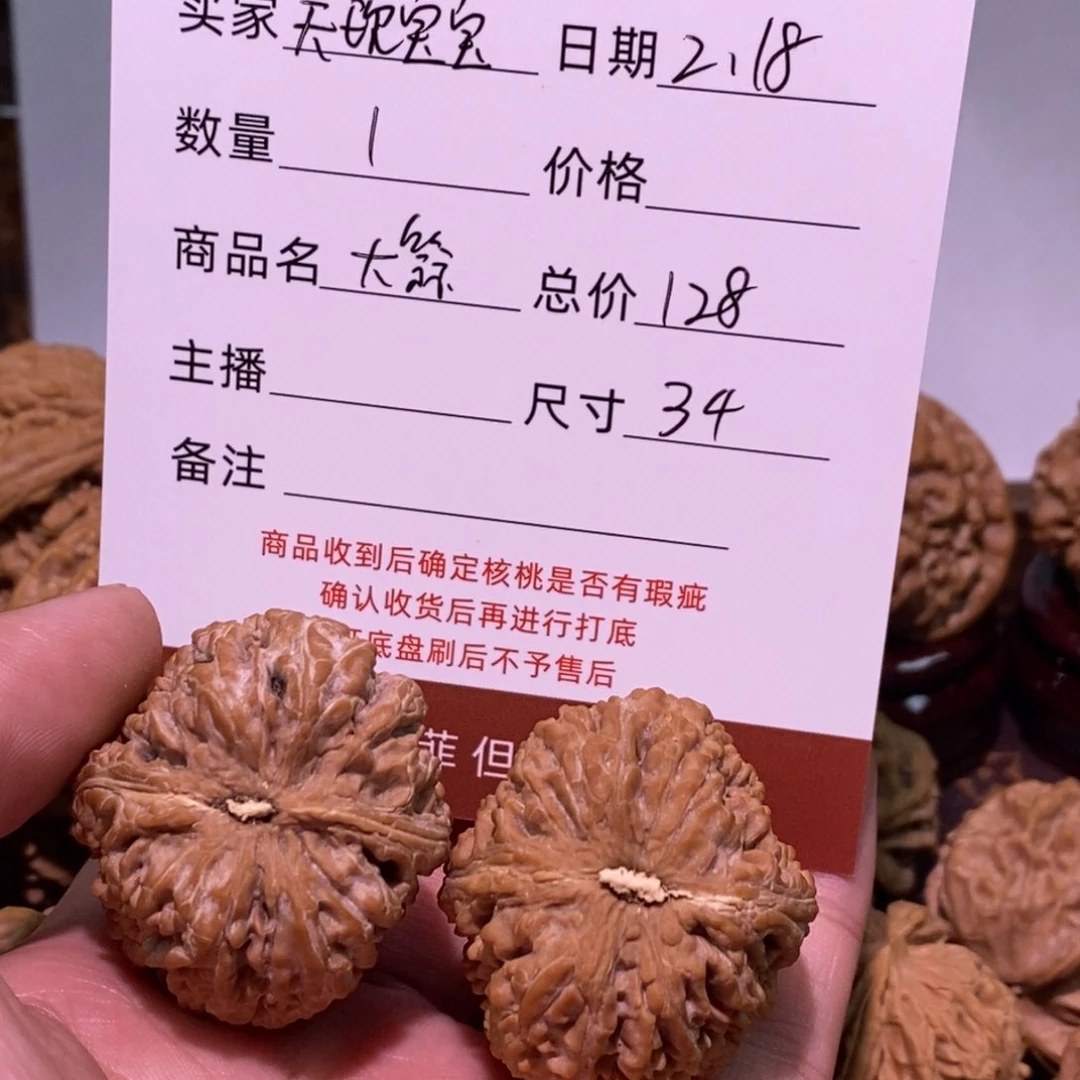 买家 天 宝宝 日期 2.18
数量 1 价格
商品名 大 总价 128
主播 尺寸 34
备注
商品收到后确定核桃是否有瑕疵
确认收货后再进行打底
底盘刷后不予售后
菲但